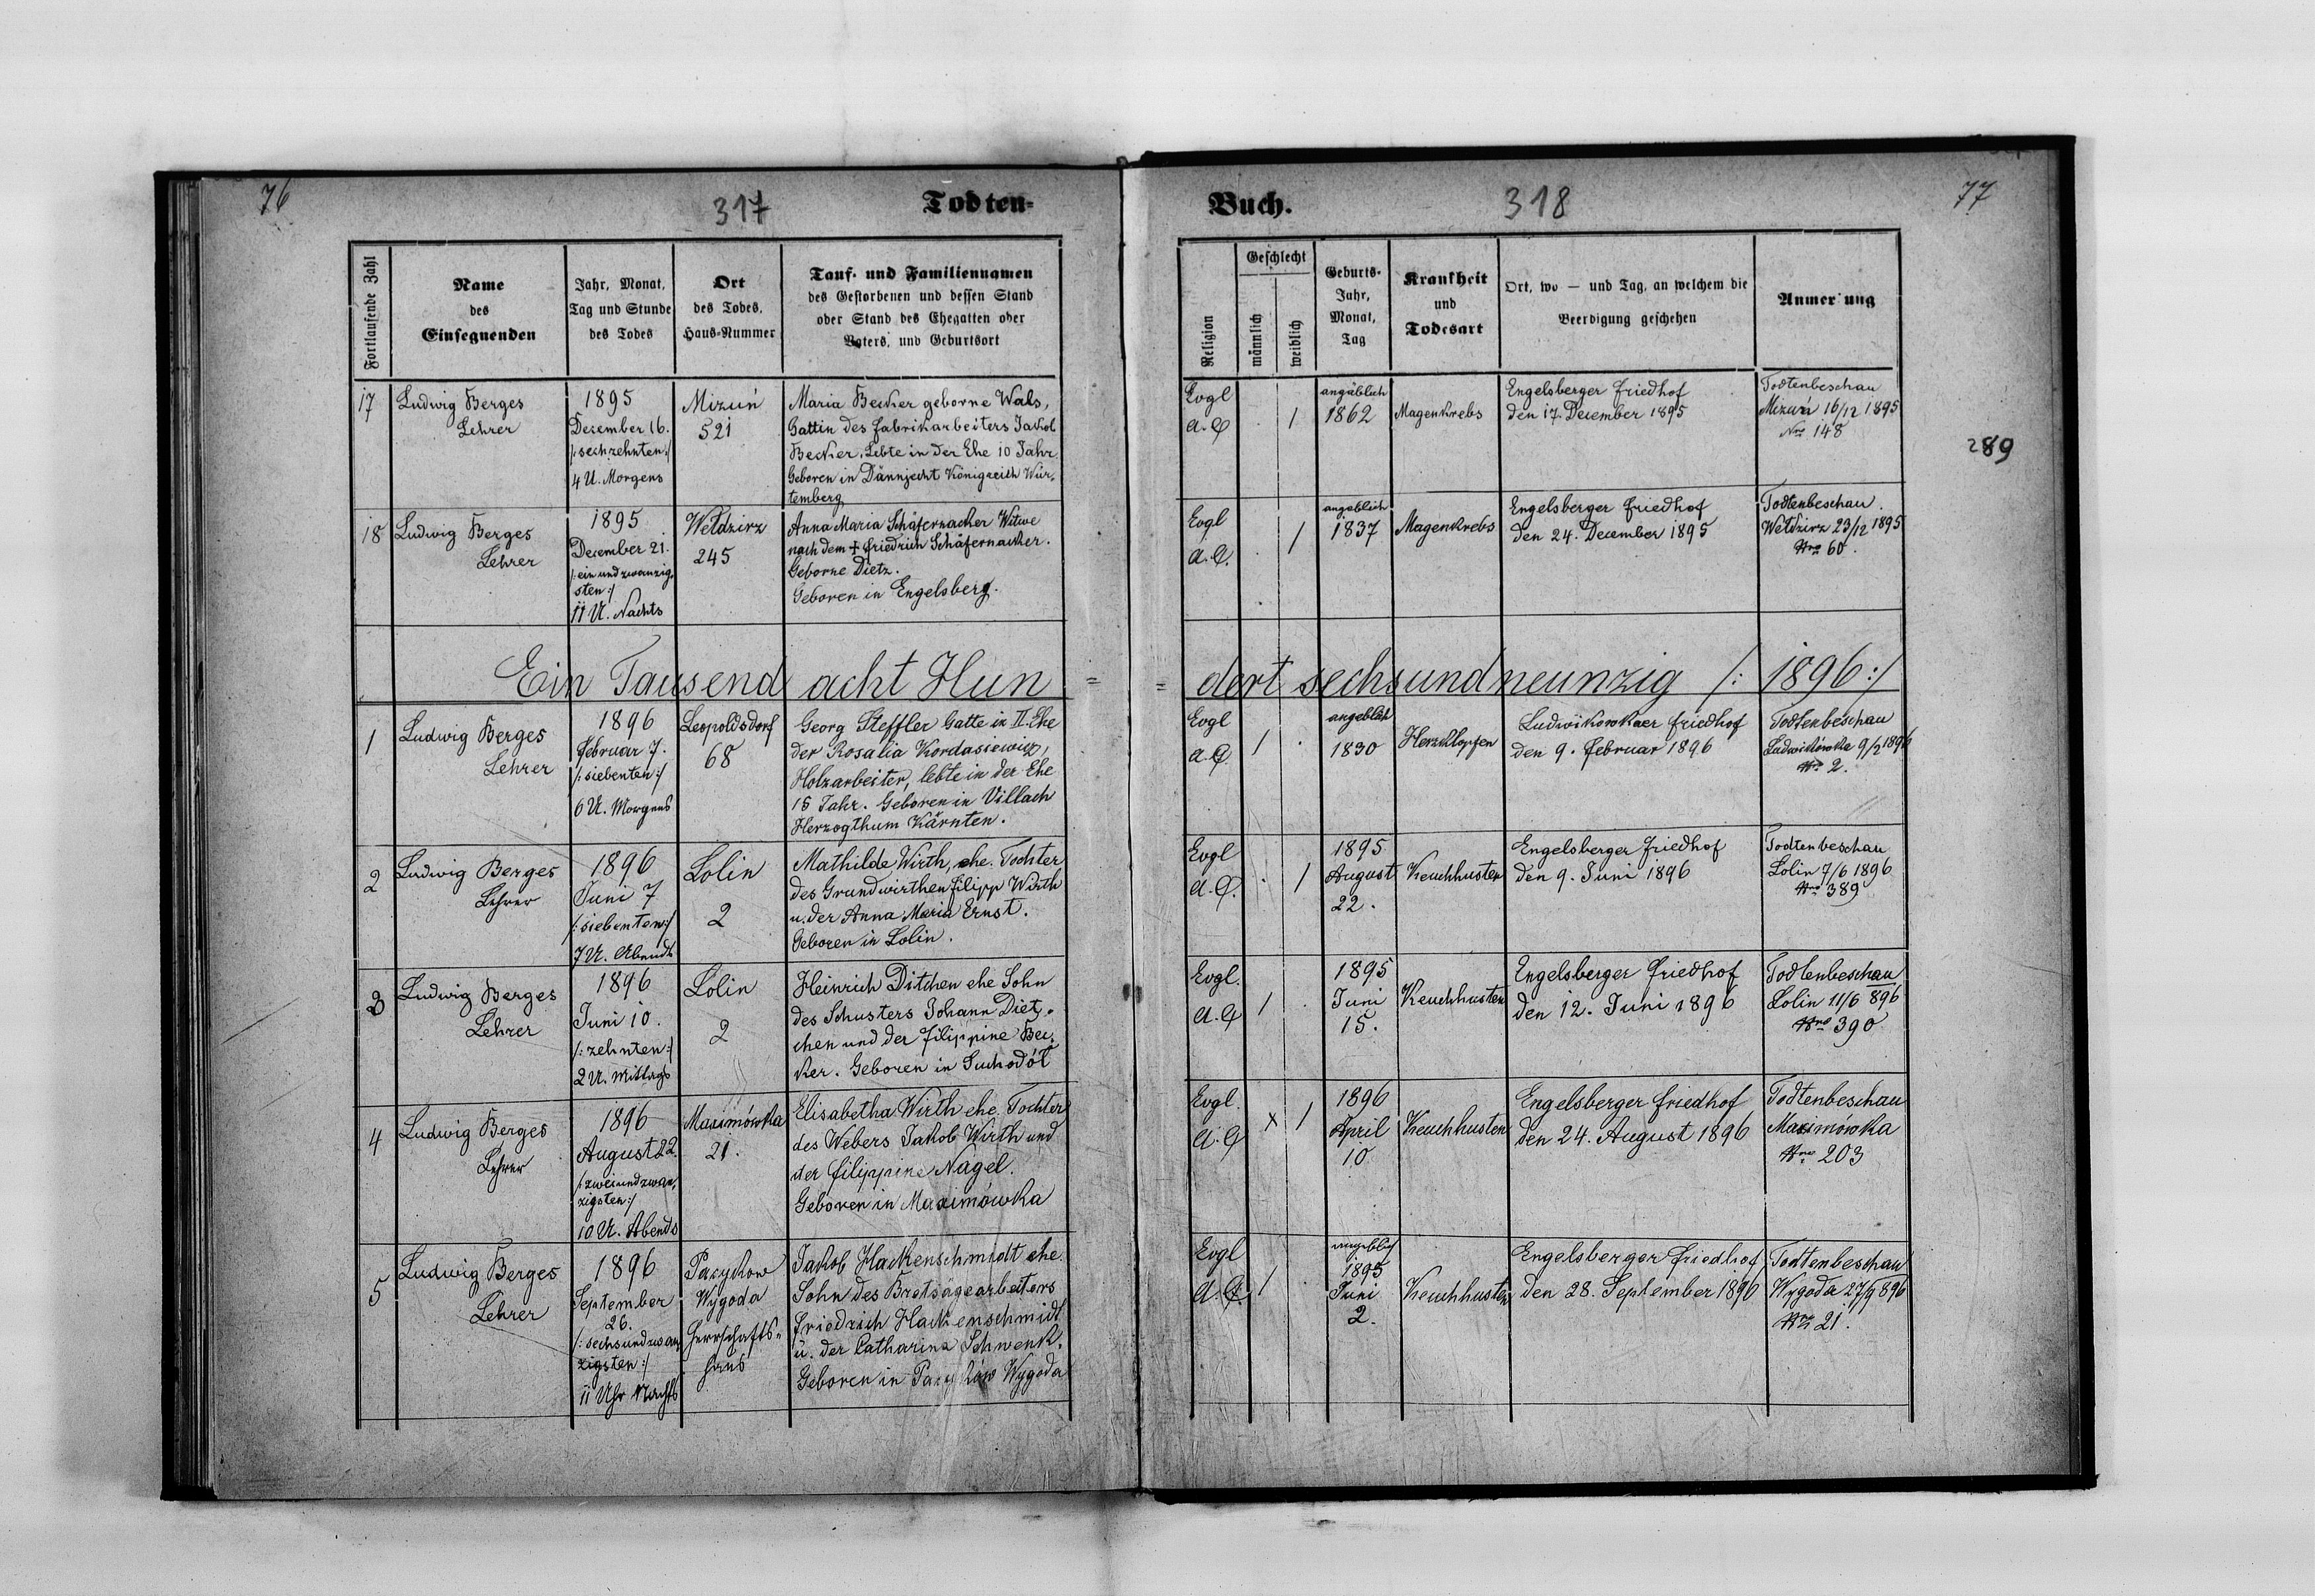 76
317
Todten-
Fortlaufende Zahl
Name
des
Einsegnenden
Jahr, Monat,
Tag und Stunde
des Todes
Ort
des Todes,
Haus-Nummer
Tauf- und Familiennamen
des Gestorbenen und dessen Stand
oder Stand des Ehegatten oder
Vaters, und Geburtsort
17
Ludwig Berges
Lehrer
1895
Dezember 16.
/:sechzehnten:/
4 U. Morgens
Mizuń
521
Maria Becker geborne Wals,
Gattin des Fabrikarbeiters Jakob
Becker. Lebte in der Ehe 10 Jahr.
Geboren in Dännjecht Königreich Wür-
temberg
18
Ludwig Berges
Lehrer
1895
December 21.
/:ein und zwanzig-
sten:/
11 U. Nachts
Wełdzirz
245
Anna Maria Schäfernacker Witwe
nach dem + Friedrich Schäfernacker.
Geborne Dietz.
Geboren in Engelsberg.
Ein Tausend acht Hun=
1
Ludwig Berges
Lehrer
1896
Februar 7.
/:siebenten:/
6 U. Morgens
Leopoldsdorf
68
Georg Steffler Gatte in II. Ehe
der Rosalia Kordasiewicz,
Holzarbeiter, lebte in der Ehe
15 Jahr. Geboren in Villach
Herzogthum Kärnten.
2
Ludwig Berges
Lehrer
1896
Juni 7
/:siebenten:/
7 U. Abends
Lolin
2
Mathilde Wirth, ehe. Tochter
des Grundwirthen Filipp Wirth
u. der Anna Maria Ernst.
Geboren in Lolin.
3
Ludwig Berges
Lehrer
1896
Juni 10.
/:zehnten:/
2 U. Mittags
Lolin
2
Heinrich Ditchen ehe Sohn
des Schusters Johann Diet-
chen und der Filippine Bec-
ker. Geboren in Suchodół
4
Ludwig Berges
Lehrer
1896
August 22.
/:zweiundzwan-
zigsten:/
10 U. Abends
Maximówka
21.
Elisabetha Wirth ehe. Tochter
des Webers Jakob Wirth und
der Filippine Nagel.
Geboren in Maximówka
5
Ludwig Berges
Lehrer
1896
September
26.
/:sechsundzwan-
zigsten:/
11 Uhr Nachts
Pacykow
Wygoda
Herrschafts-
haus
Jakob Hackenschmidt ehe.
Sohn des Bretsägearbeiters
Friedrich Hackenschmidt
u. der Catharina Schwenk.
Geboren in Pacyków Wygoda
Buch.
318
77
Religion
Geschlecht
männlich
weiblich
Geburts-
Jahr,
Monat,
Tag
Krankheit
und
Todesart
Ort, wo — und Tag, an welchem die
Beerdigung geschehen
Anmerkung
Evgl
A.C
1
angäblich
1862
Magenkrebs
Engelsberger Friedhof
den 17. December 1895
Todtenbeschau
Mizuń 16/12 1895
Nro 148
289
Evgl
A.C.
1
angeblich
1837
Magenkrebs
Engelsberger Friedhof
den 24. December 1895
Todtenbeschau.
Wełdzirz 23/12 1895
Nro 60.
=dert sechsundneunzig /: 1896:/
Evgl
A.C.
1
angeblich
1830
Herzklopfen
Ludwikowkaer Friedhof
den 9. Februar 1896
Todtenbeschau
Ludwikówka 9/2 1896
Nro 2.
Evgl
A.C.
1
1895
August
22.
Keuchhusten
Engelsberger Friedhof
den 9. Juni 1896
Todtenbeschau
Lolin 7/6 1896
Nro 389
Evgl.
A.C
1
1895
Juni
15.
Keuchhusten
Engelsberger Friedhof
den 12. Juni 1896
Todtenbeschau
Lolin 11/6 896
Nro 390
Evgl.
A.C
x 1
1896
April
10
Keuchhusten
Engelsberger Friedhof
den 24. August 1896
Todtenbeschau
Maximówka
Nro 203
Evgl
A.C.
1
angeblich
1895
Juni
2.
Keuchhusten
Engelsberger Friedhof
den 28. September 1896
Todtenbeschau
Wygoda 27/9 896
Nr 21.